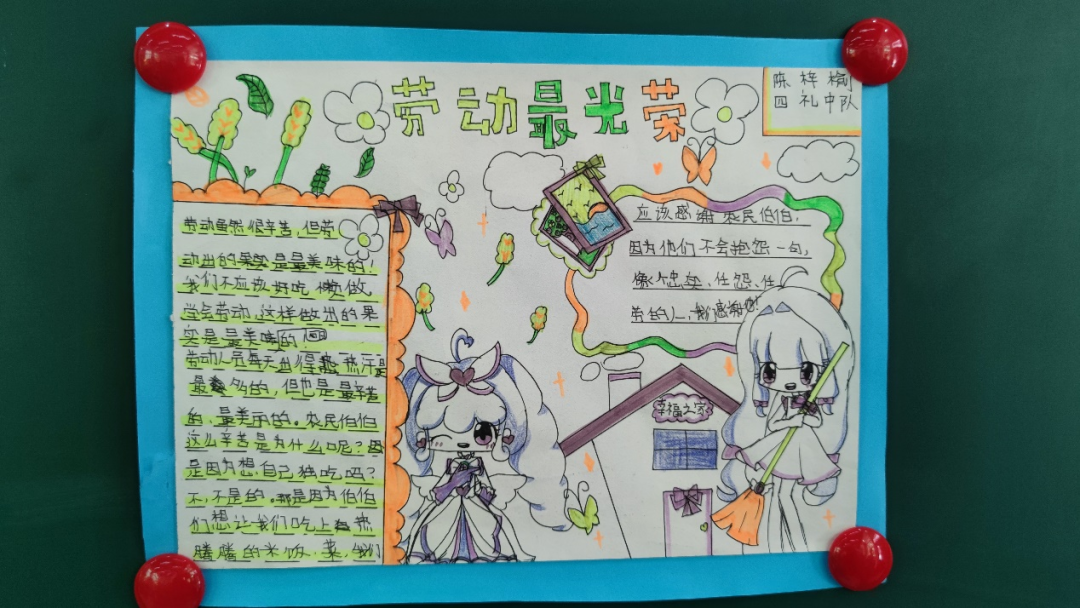 劳动最光荣
陈梓
四礼中队
劳动虽然很辛苦，但劳
动出的果实是最美味的，
我们不应该好吃懒做
学会劳动，这样做出的果
实是最美味的！
劳动人员每天出得热汗是
最多的，但也是最辛苦
的，最美示的。农民伯伯
这么辛苦是为什么呢？
是因为想自己独吃吗？
不，不是的。那是因为伯伯
们想让我们吃上热
腾腾的米饭，菜，我们
应该感谢农民伯伯，
因为他们不会抱怨一句，
像个忠实、任怨、任
劳的人，我们感谢您！
幸福之家